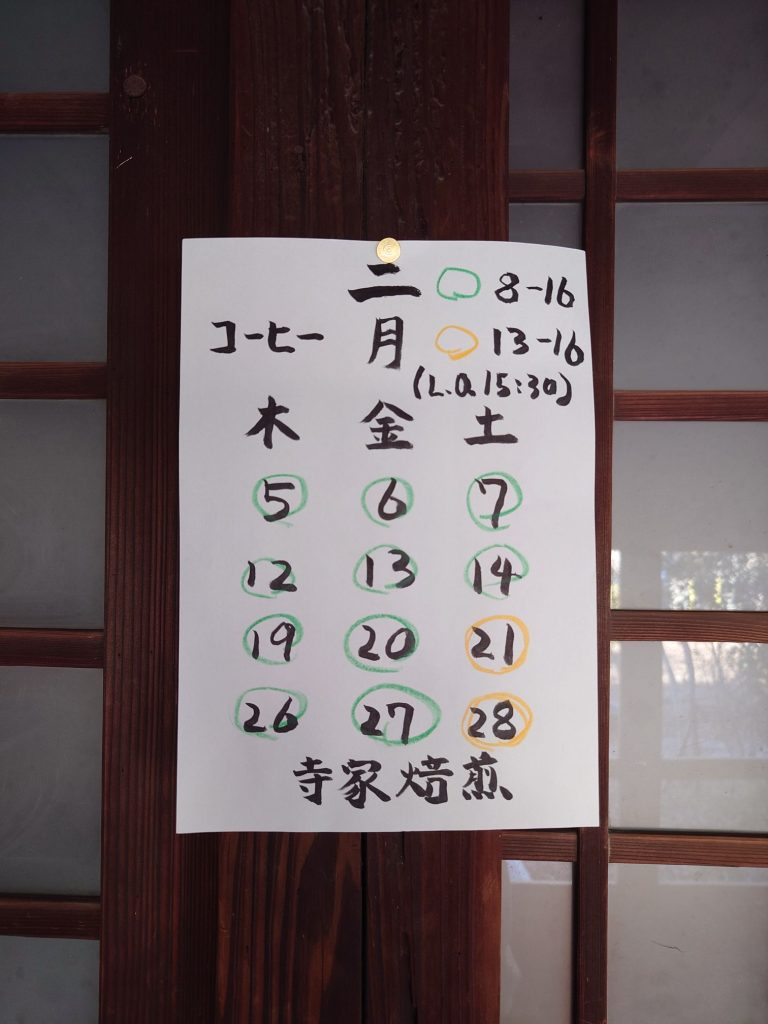 二 ○ 8-16
コーヒー 月 ○ 13-16
(L.O.15:30)
木 金 土
5 6 7
12 13 14
19 20 21
26 27 28
寺家焙煎